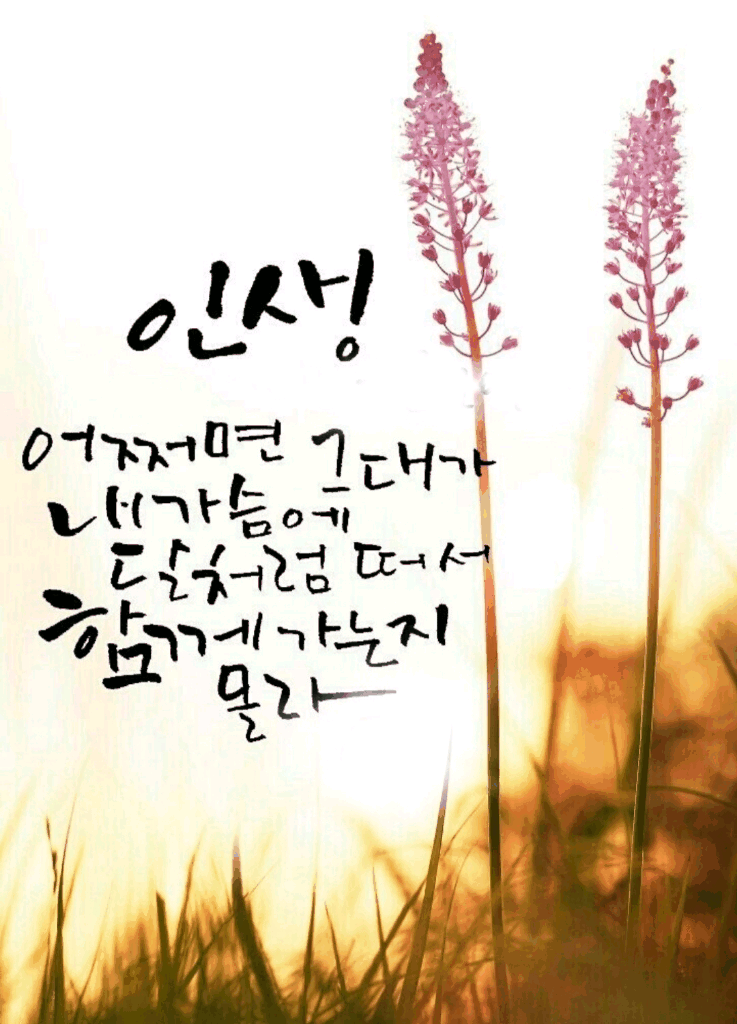 인생
어쩌면 그대가
내 가슴에
달처럼 떠서
함께 가는지
몰라